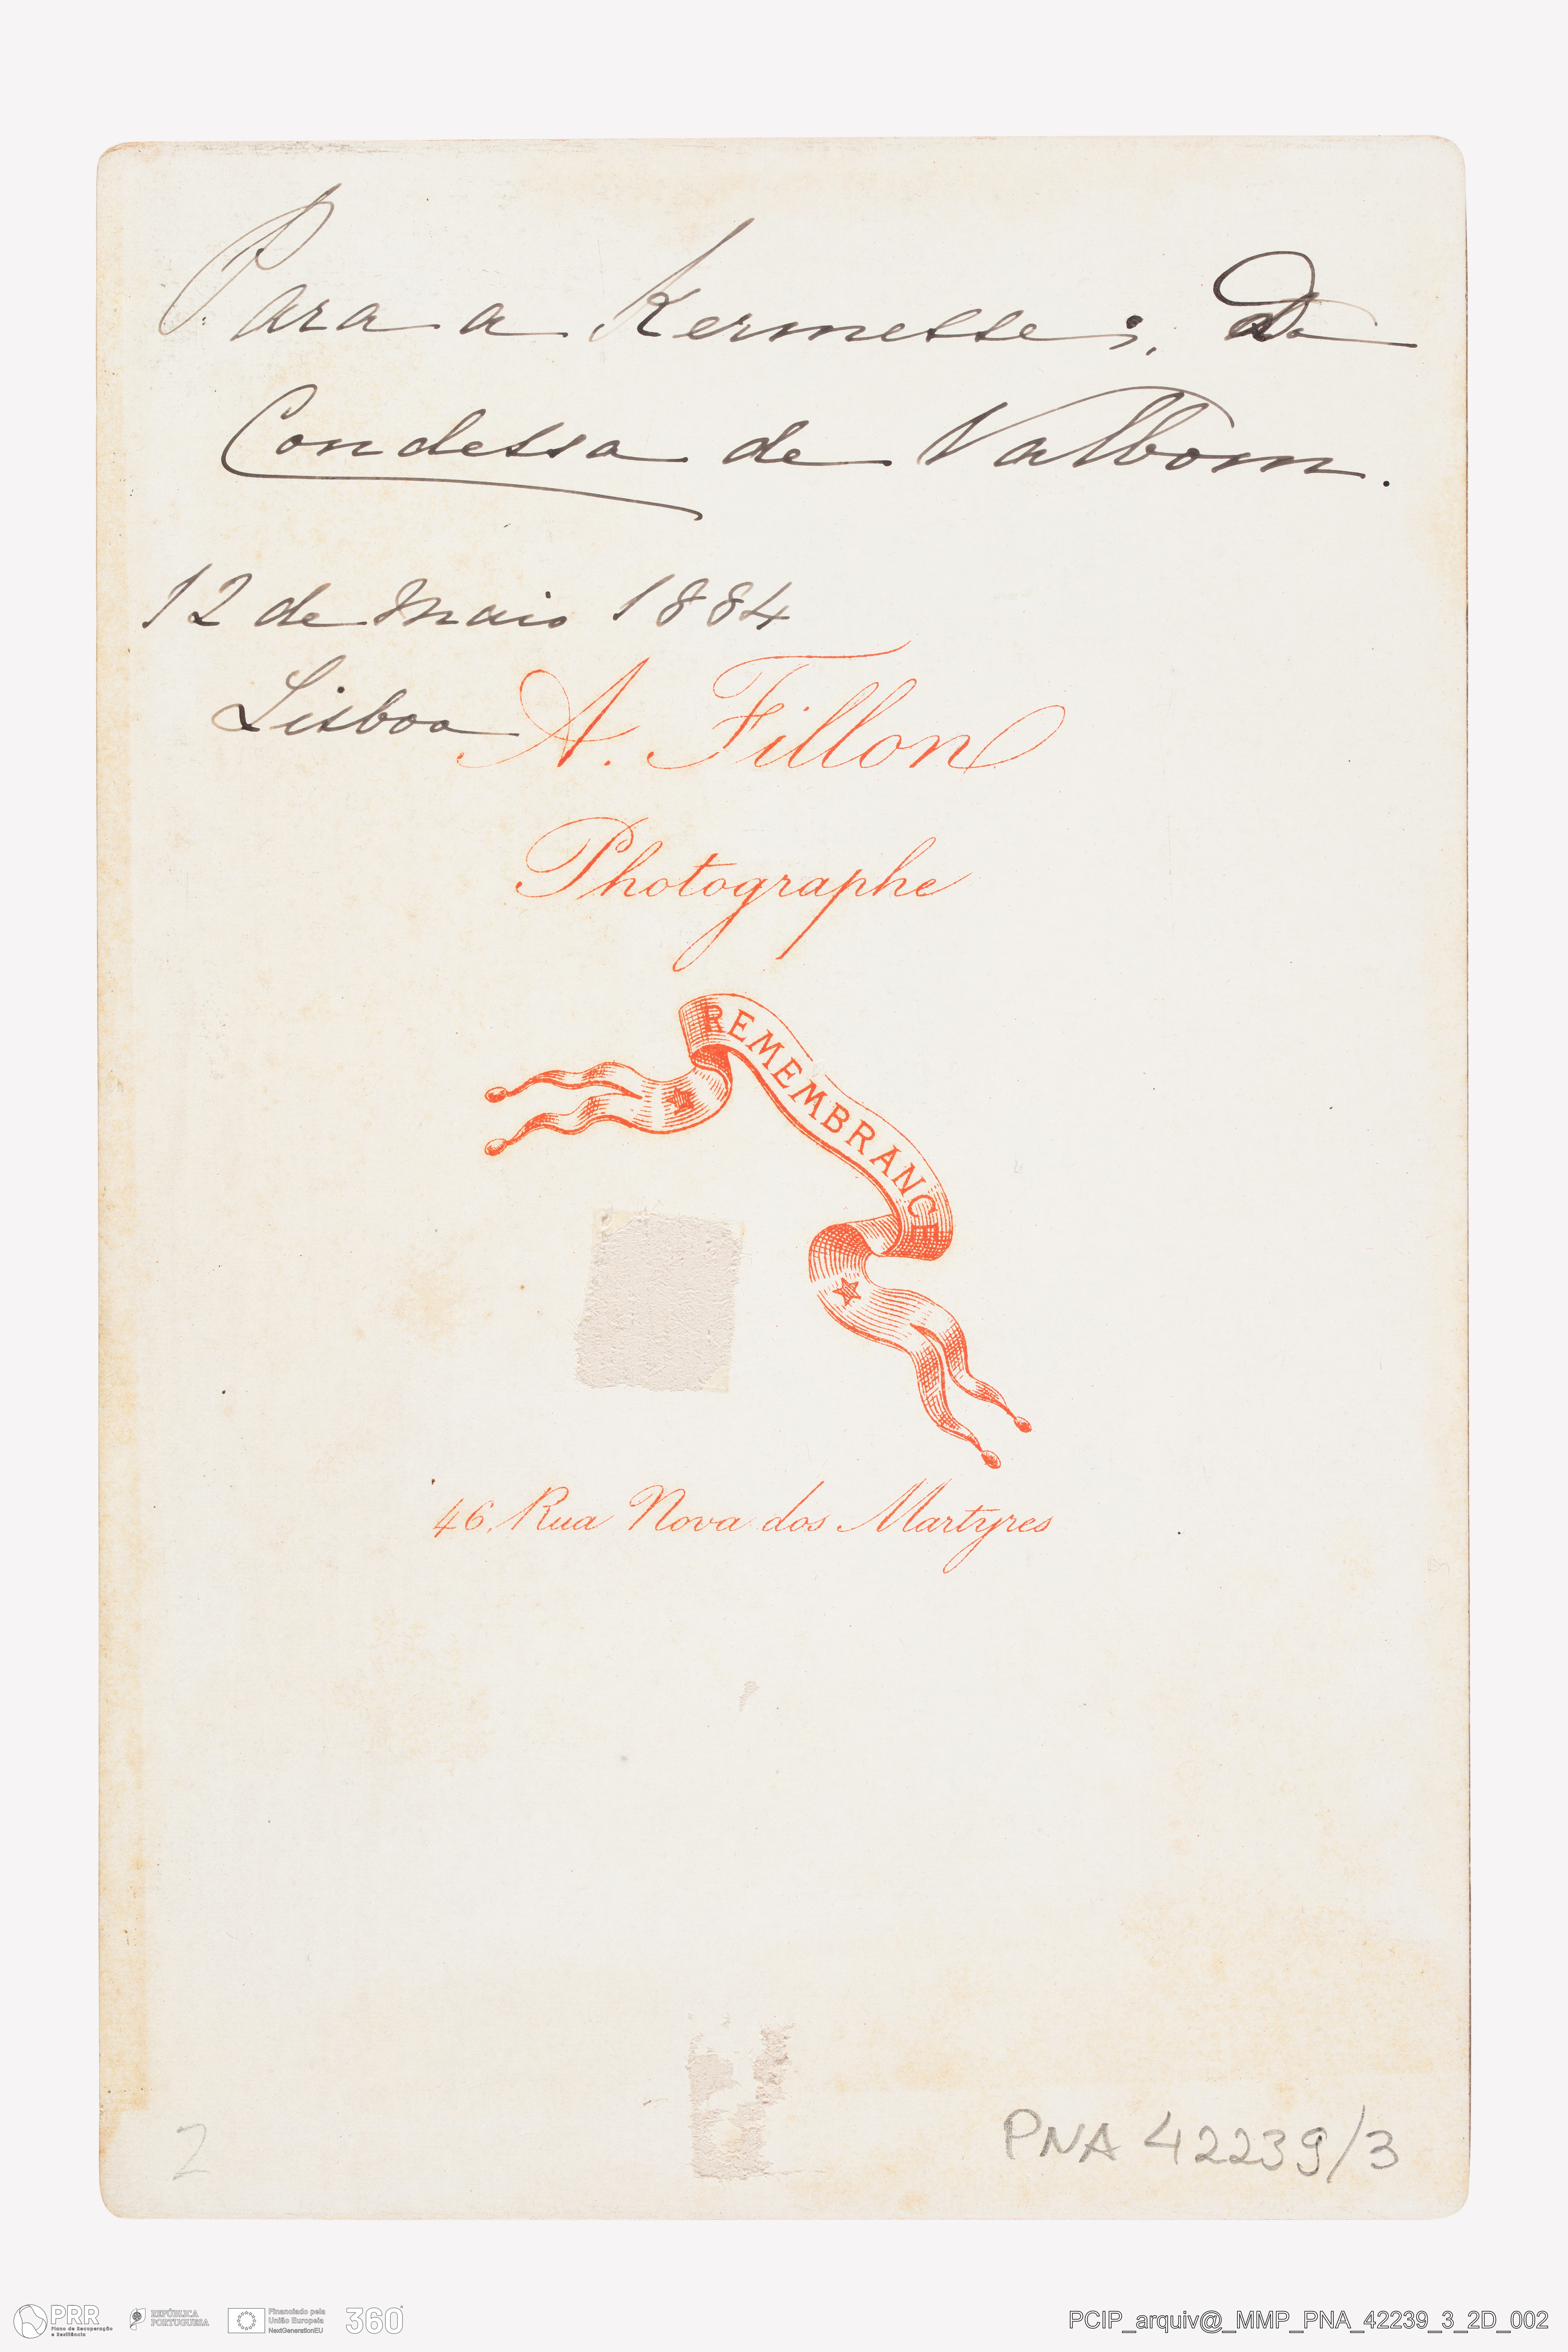 Para a Kermesse; da
Condessa de Valbom.
12 de Maio 1884
Lisboa
A. Fillon
Photographe
REMEMBRANCE
46, Rua Nova dos Martyres
2
PNA 42239/3
PRR
Plano de Recuperação
e Resiliência
REPÚBLICA
PORTUGUESA
Financiado pela
União Europeia
NextGenerationEU
360°
PCIP_arquiv@_MMP_PNA_42239_3_2D_002